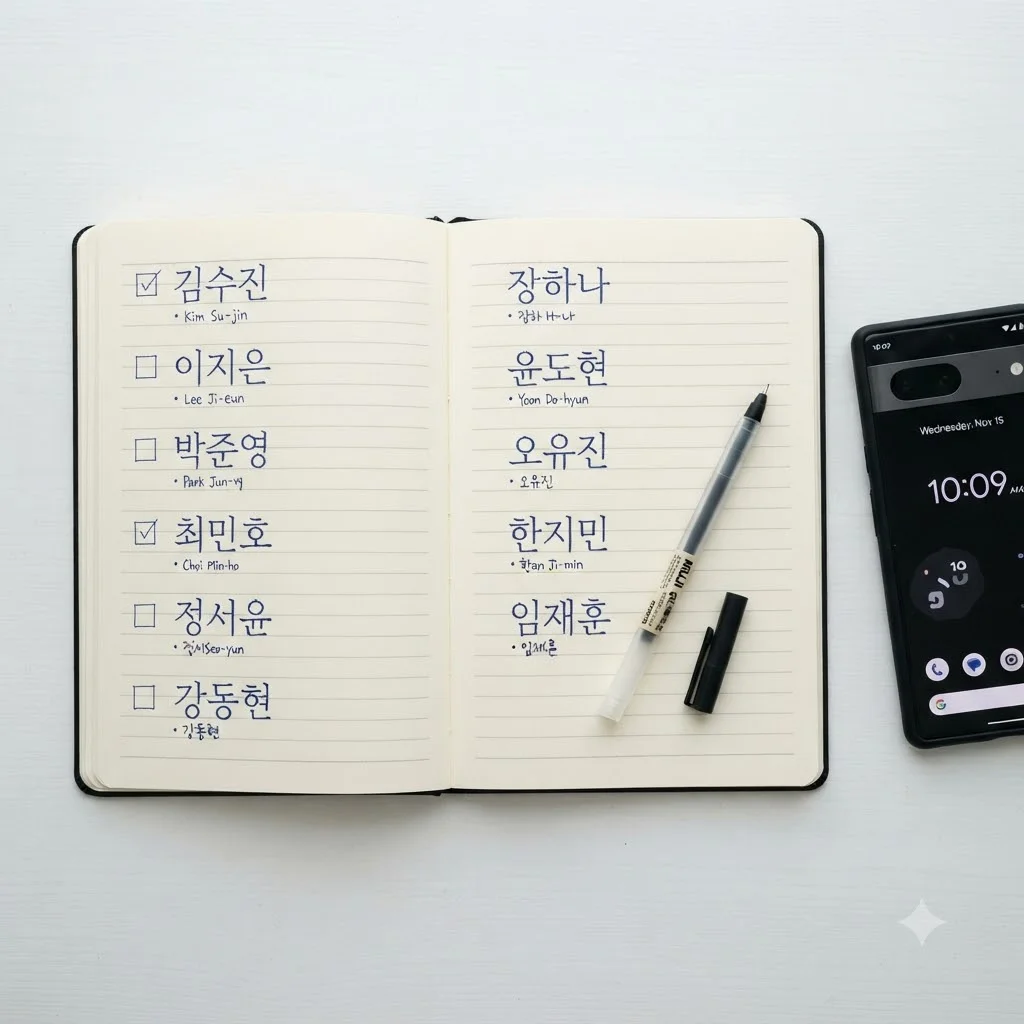 ☑ 김수진
• Kim Su-jin
☐ 이지은
• Lee Ji-eun
☐ 박준영
• Park Jun-yg
☑ 최민호
• Choi Min-ho
☐ 정서윤
• Seo-yun
☐ 강동현
• 김동현
장하나
윤도현
• Yoon Do-hyun
오유진
• 오유진
한지민
• Ji-min
임재훈
MUJI
10:09
Wednesday, Nov 15
10:09
10